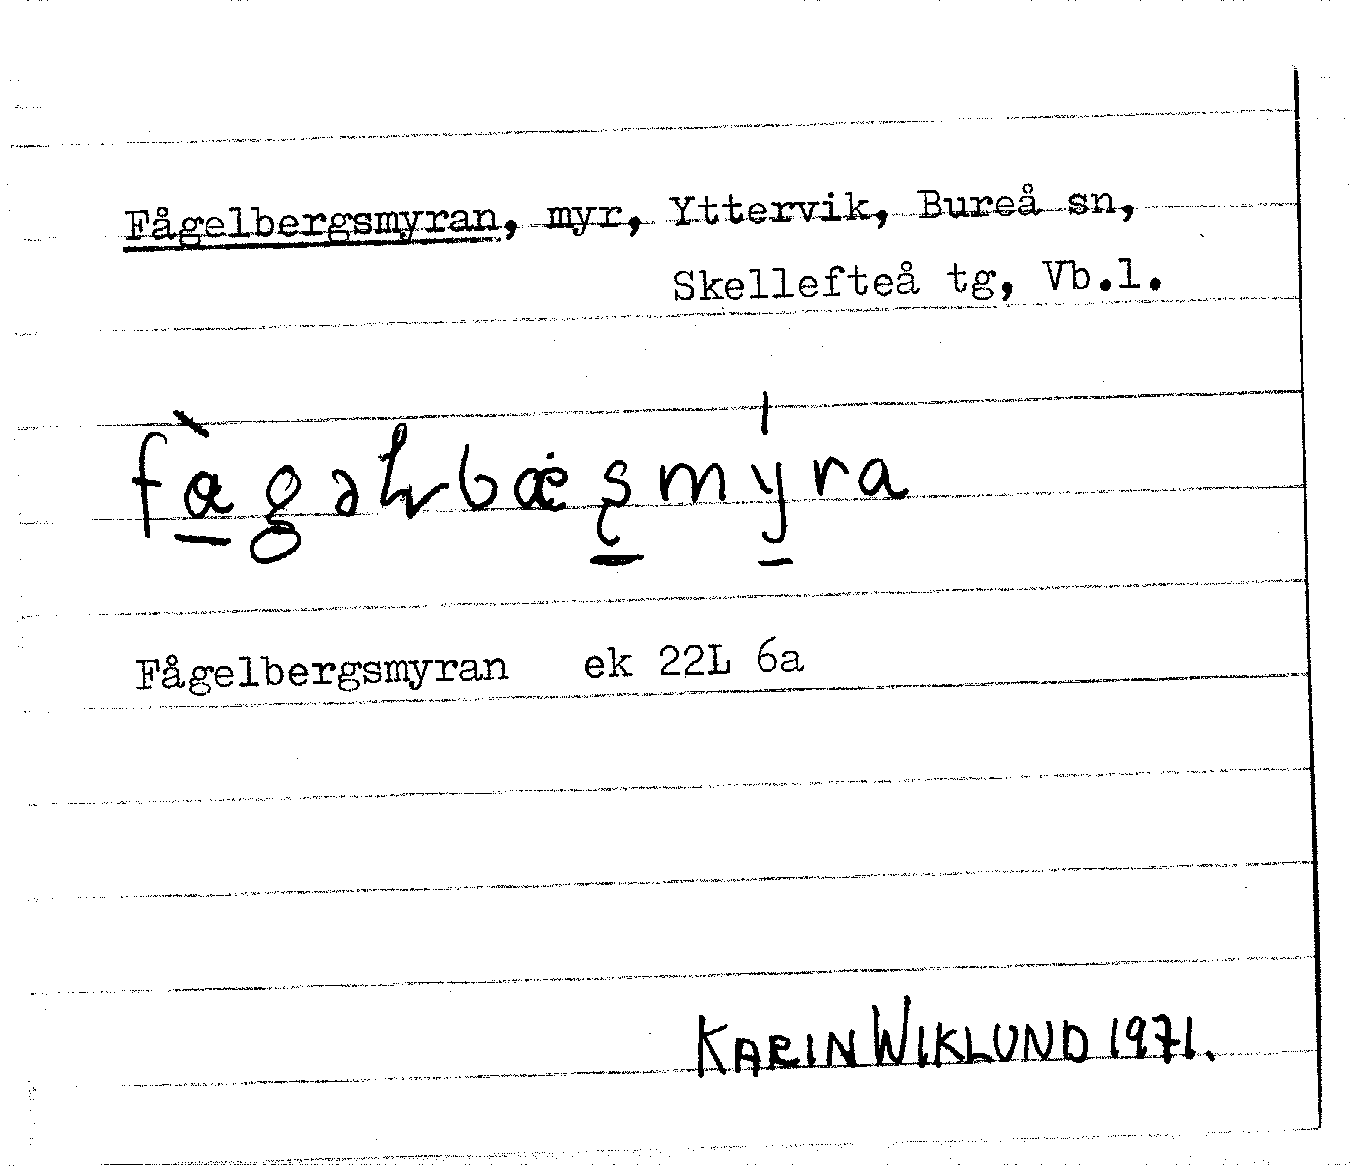 Fågelbergsmyran, myr, Yttervik, Bureå sn,
Skellefteå tg, Vb.l.
Fågelbergsmyran ek 22L 6a
KARIN WIKLUND 1971.